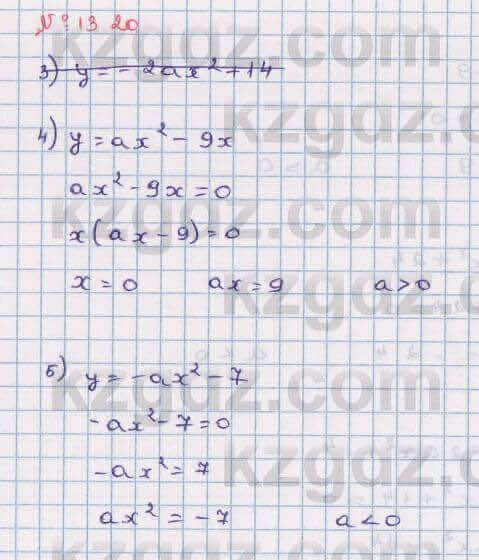 № 13 20
3) y = - 2ax² + 14
4) y = ax² - 9x
ax² - 9x = 0
x(ax - 9) = 0
x = 0 ax = 9 a > 0
5) y = -ax² - 7
-ax² - 7 = 0
-ax² = 7
ax² = -7 a < 0
kzgdz.com